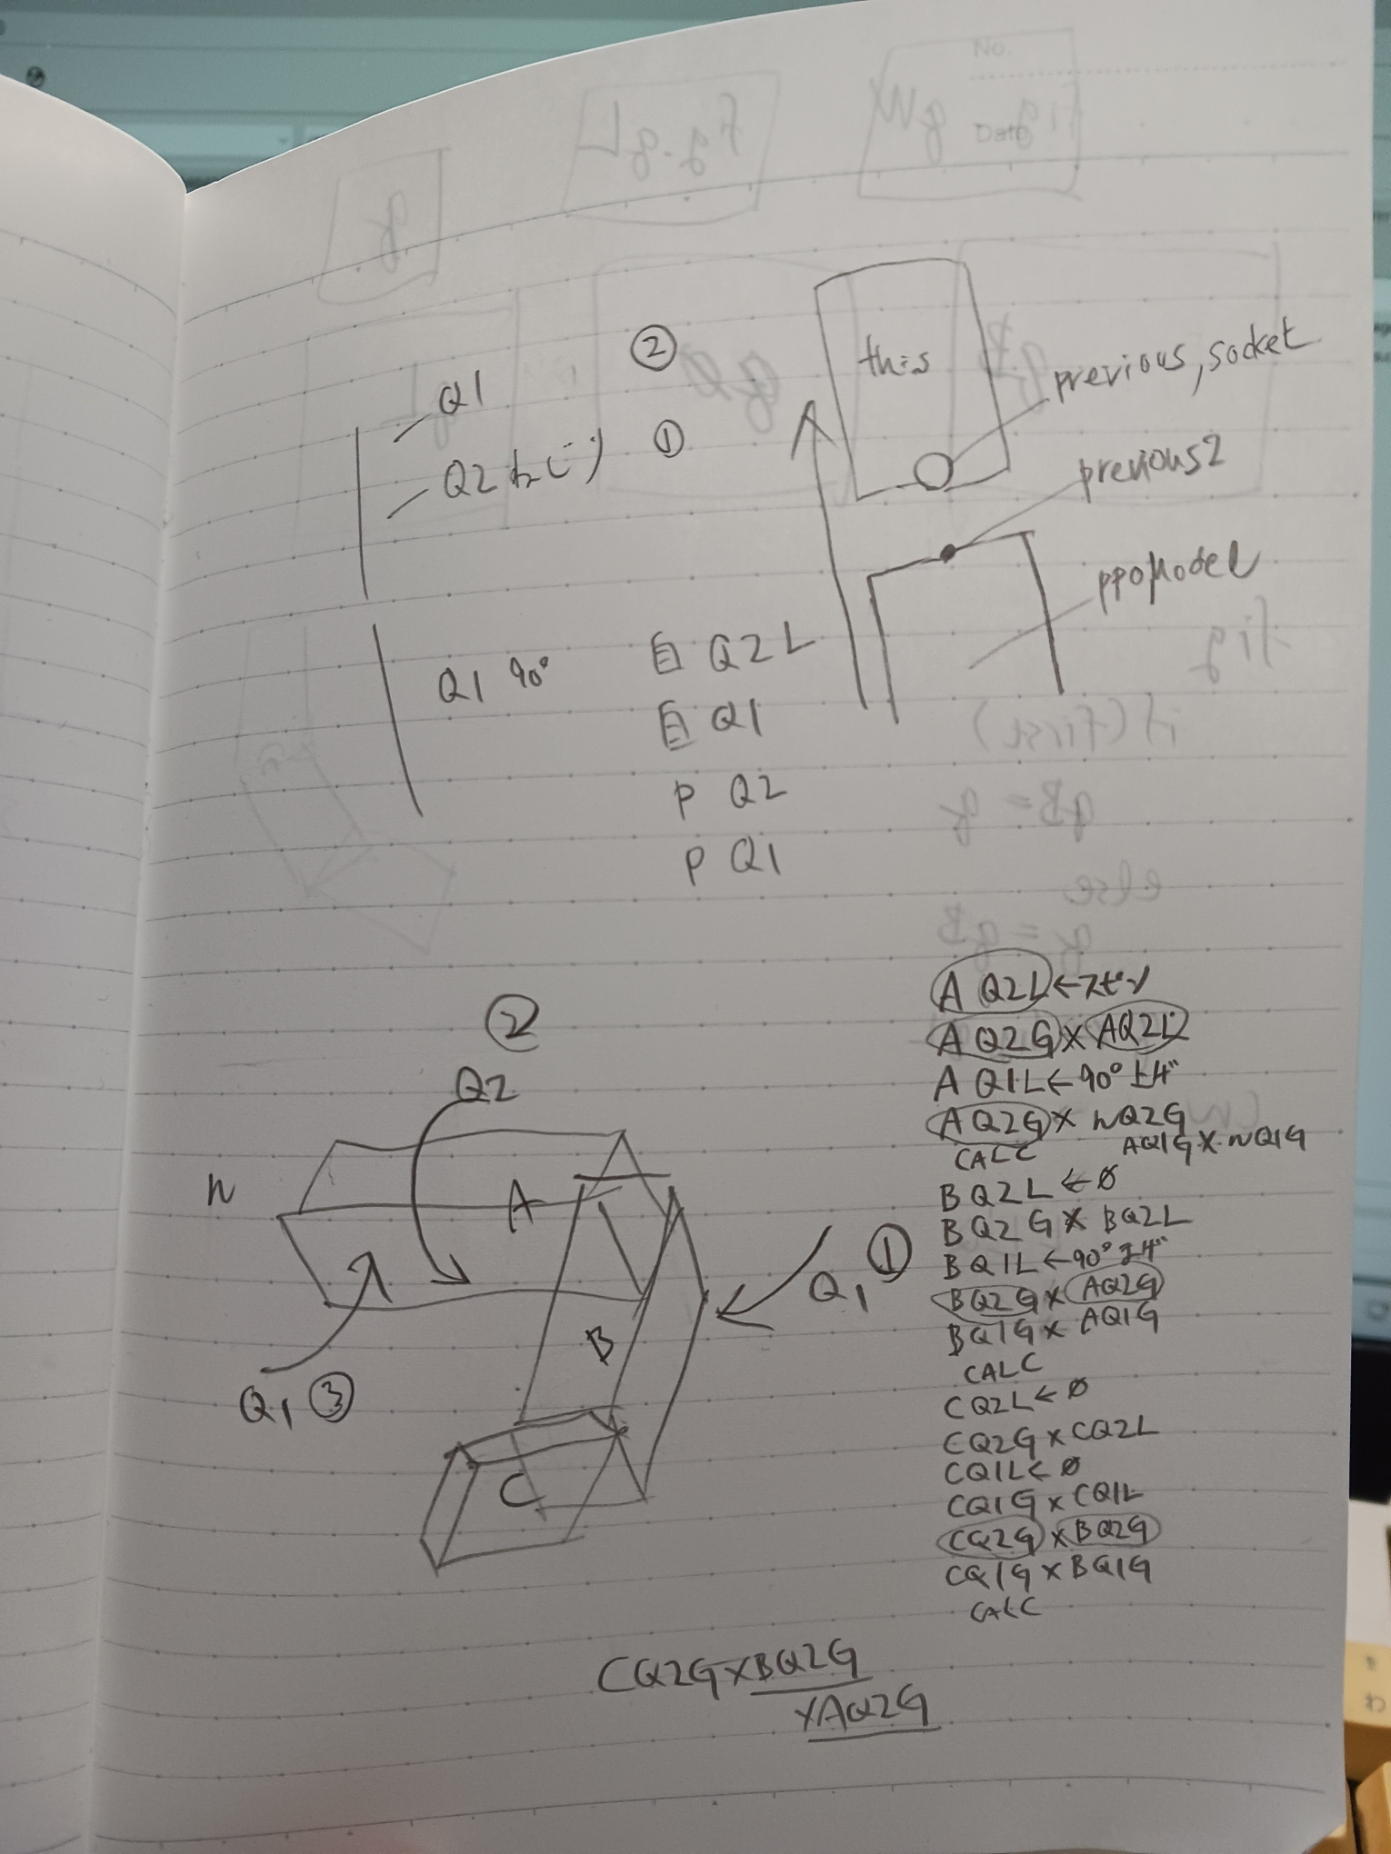 No.
Date
② this
Q1
previous, socket
Q2 ①
previous2
ppoModel
Q1 90°
自 Q2 L
自 Q1
P Q2
P Q1
②
Q2
n
A
B
C
Q1 ①
Q1 ③
A Q2L←
A Q2G×AQ2L
A Q1L←90°±4"
A Q2G× nQ2G
AQ1G×nQ1G
CALC
BQ2L←0
BQ2G×BQ2L
BQ1L←90°±4"
BQ2G×AQ2G
BQ1G×AQ1G
CALC
CQ2L←0
CQ2G×CQ2L
CQ1L←0
CQ1G×CQ1L
CQ2G×BQ2G
CQ1G×BQ1G
CALC
CQ2G×BQ2G
×AQ2G